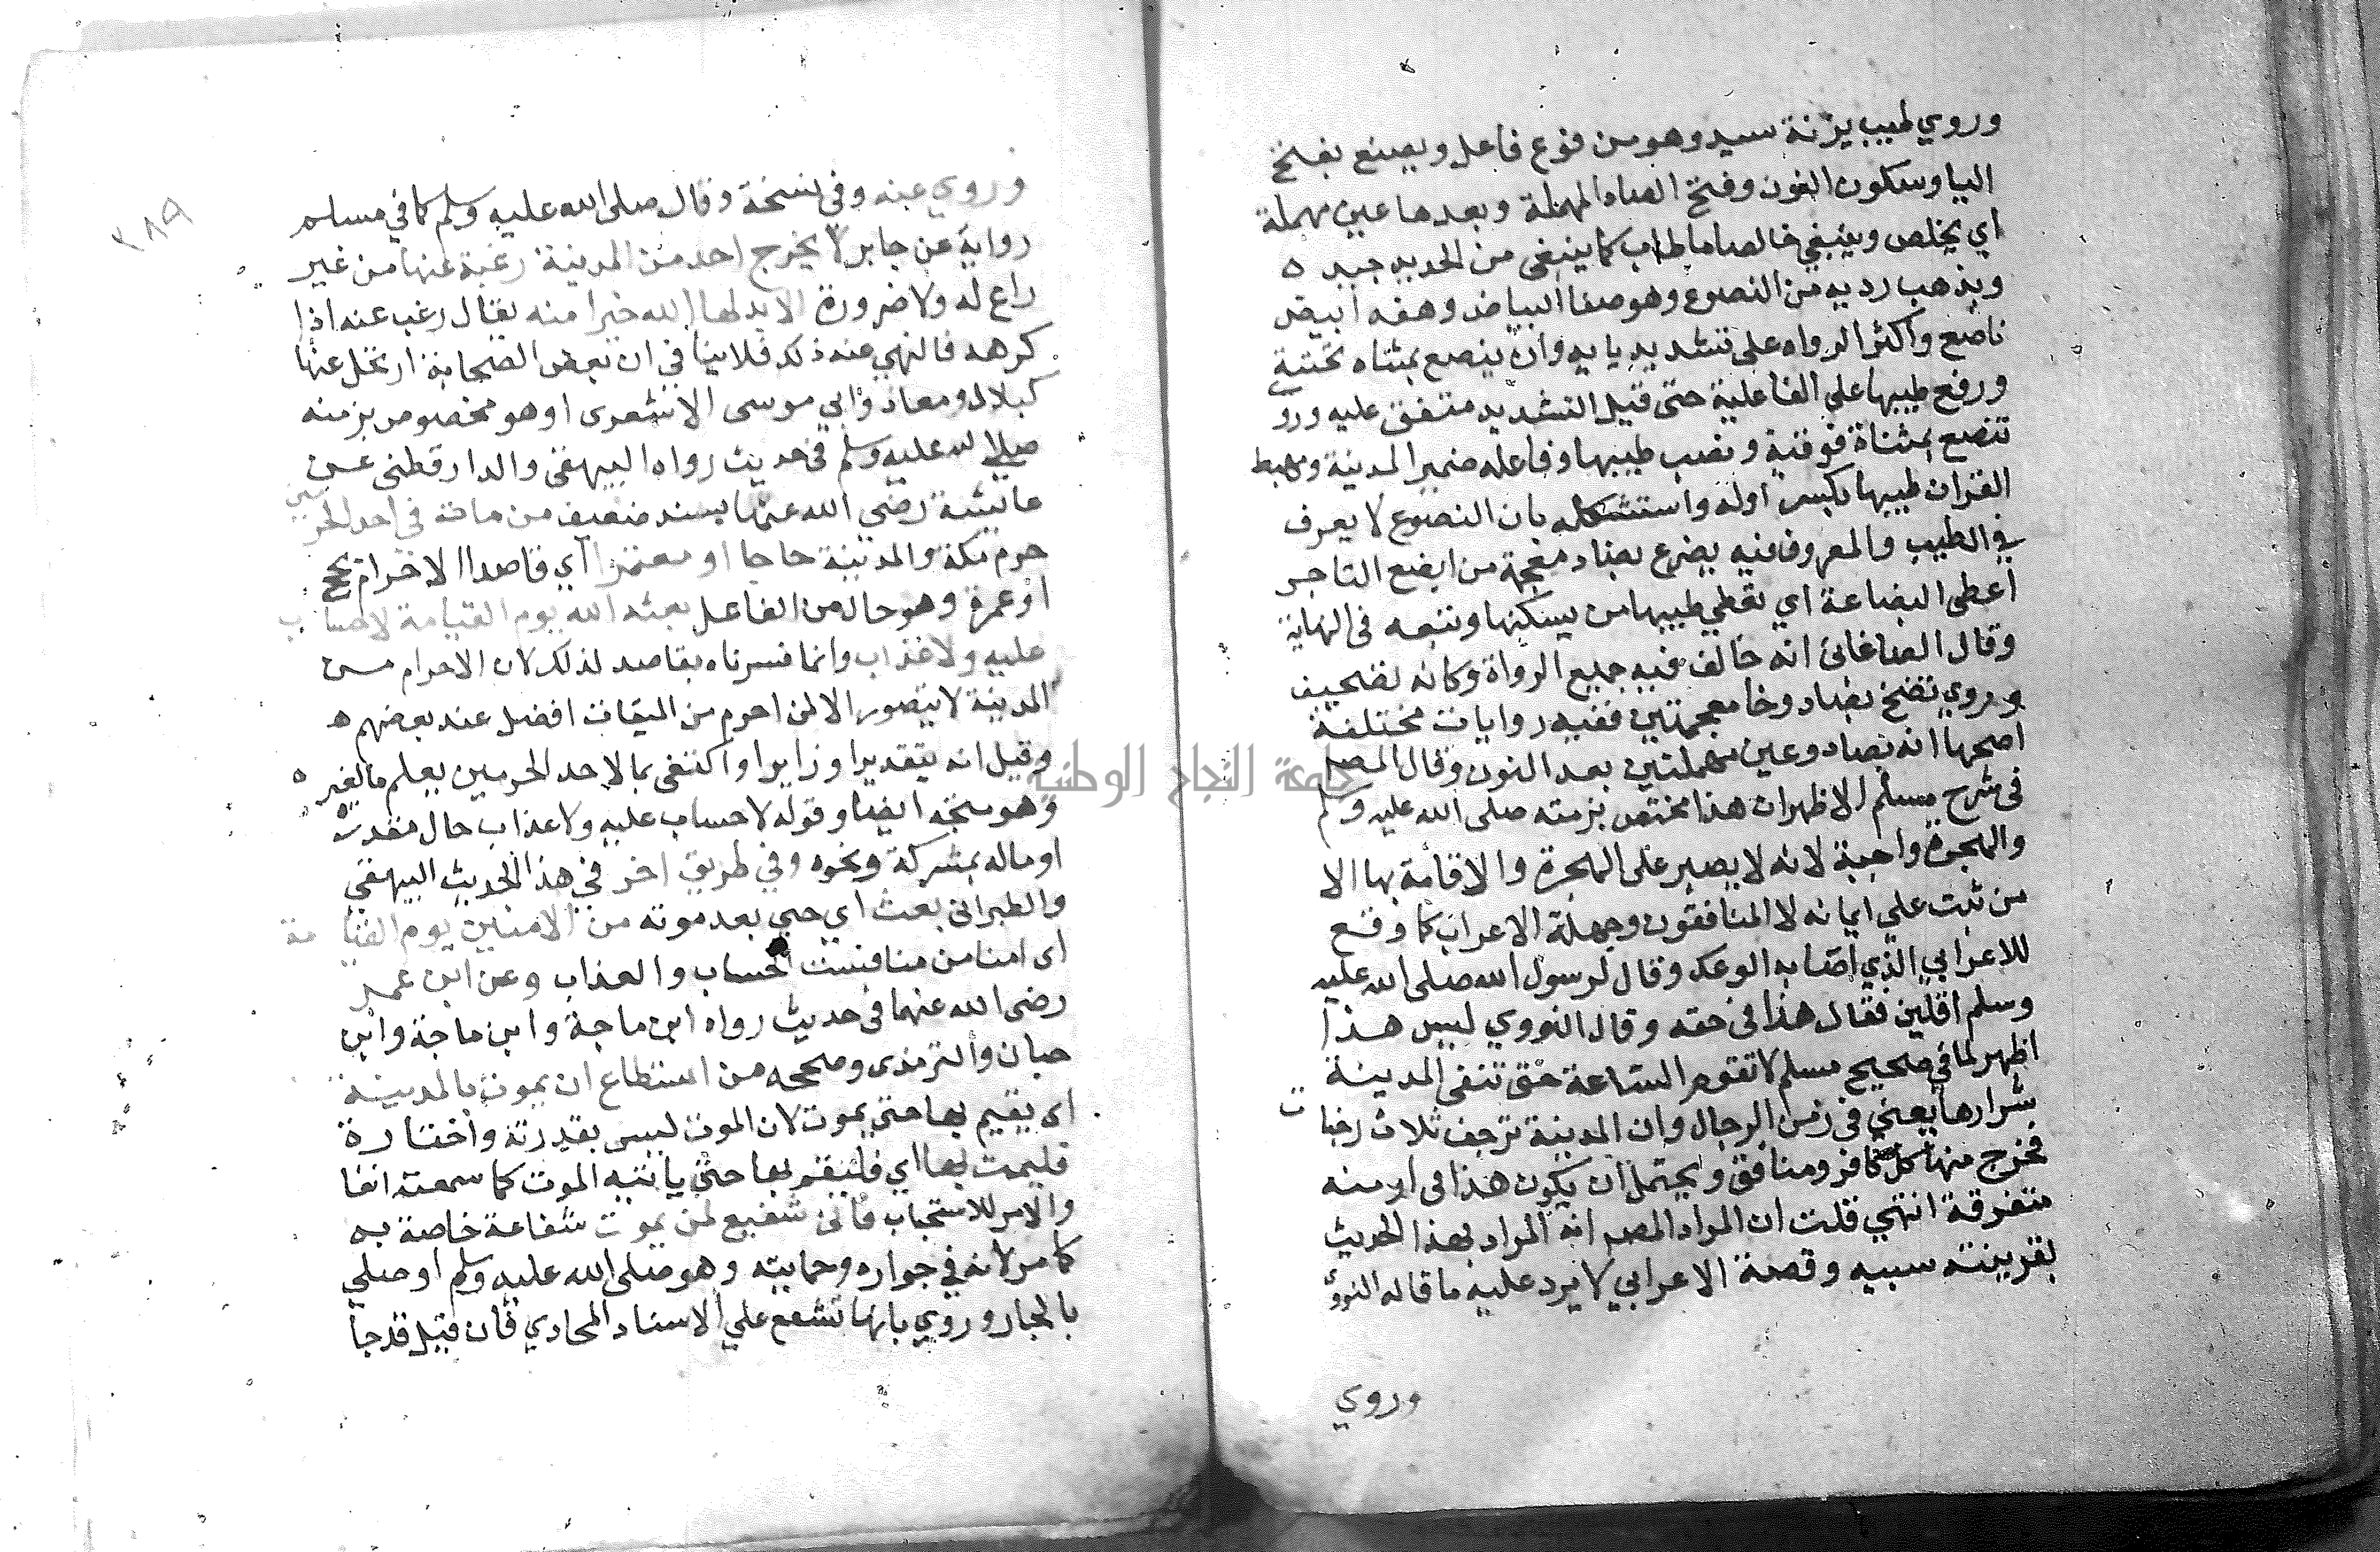 وروي طيب بزنة سيد وهو من فوع فاعل وينصع بفتح
اليا وسكون النون وفتح الصاد المهملة وبعدها عين مهملة
اي يخلص ويبقي خالصا ما طاب كما ينبغي من الحديد جيد ه
ويذهب رديه من النصوع وهو صفا البياض وصفه ابيض
ناصع واكثر الرواه على تشديد يايه وان ينصع بمثناه تحتية
ورفع طيبها علي الفاعلية حتى قيل التشديد متفق عليه وروي
تنصع بمثناة فوقية ونصب طيبها وفاعله ضمير المدينة وضبط
القران طيبها بكسر اوله واستشكله بان النصوع لا يعرف
في الطيب والمعروف فيه يضوع بضاد معجمة من ابضع التاجر
اعطى البضاعة اي تعطي طيبها من يسكنها وتبعه في النهاية
وقال الصاغانى انه خالف فيه جميع الرواة وكانه تصحيف
وروي تنضخ بضاد وخا معجمتين ففيه روايات مختلفة
اصحها انه بصاد وعين مهملتين بعد النون وقال المص
في شرح مسلم الاظهر ان هذا مختص بزمنه صلى الله عليه وسلم
والهجرة واجبة لانه لا يصبر على الهجرة والاقامة بها الا
من ثبت علي ايمانه لا المنافقون وجهلة الاعراب كما وقع
للاعرابي الذي اصابه الوعك وقال لرسول الله صلى الله عليه
وسلم اقلني فقال هذا في حقه وقال النووي ليس هذا
اظهر لما في صحيح مسلم لا تقوم الساعة حتى تنفي المدينة
شرارها يعني في زمن الدجال وان المدينة ترجف ثلاث رجفات
فخرج منها كل كافر ومنافق ويحتمل ان يكون هذا في ازمنه
متفرقة انتهي قلت ان المراد المص انه المراد بهذا الحديث
بقرينة سببه وقصة الاعرابي لا يرد عليه ما قاله النووي
وروي
٣٨٩
وروي عنه وفي نسخة وقال صلى الله عليه وسلم كما في مسلم
رواية عن جابر لا يخرج احد من المدينة رغبة عنها من غير
داع له ولا ضرورة الا بدلها الله خيرا منه يقال رغب عنه اذا
كرهه فالنهي عنه ذلك فلا ينافي ان بعض الصحابة ارتحل عنها
كبلال ومعاذ وابي موسى الاشعرى او هو مخصوص بزمنه
صلى الله عليه وسلم في حديث رواه البيهقي والدارقطنى عن
عايشة رضي الله عنها بسند ضعيف من مات في احد الحرمين
حرم مكة والمدينة حاجا او معتمرا اي قاصدا الاحرام بحج
او عمرة وهو حال من الفاعل بعثه الله يوم القيامة لا حساب
عليه ولا عذاب وانما فسرناه بقاصد لذلك لان الاحرام من
المدينة لا يتصور الا لمن احرم من الميقات افضل عند بعضهم ه
وقيل انه بتقدير او زايرا واكتفى بما لاحد الحرمين يعلم ما لغير ه
وهو متجه ايضا وقوله لا حساب عليه ولا عذاب حال مقدرة
او ماله بمشركة ونحوه وفي طريق اخر في هذا الحديث البيهقي
والطبراني بعث اي حيي بعد موته من الامنين يوم القيامة
اى امنا من مناقشة الحساب والعذاب وعن ابن عمر
رضى الله عنهما فى حديث رواه ابن ماجة وابن ماجة وابن
حبان والترمذى وصححه من استطاع ان يموت بالمدينة
اى يقيم بها حتى يموت لان الموت ليس بقدرته واختياره
فليمت بها اي فليقم بها حتى ياتيه الموت كما سمعته انفا
والامر للاستحباب فاني شفيع لمن يموت شفاعة خاصة به
كما مر لانه في جواره وحمايته وهو صلى الله عليه وسلم اوصلي
بالجار وروي بانها تشفع علي الاسناد المجازي فان قيل قد جا
جامعة النجاح الوطنية